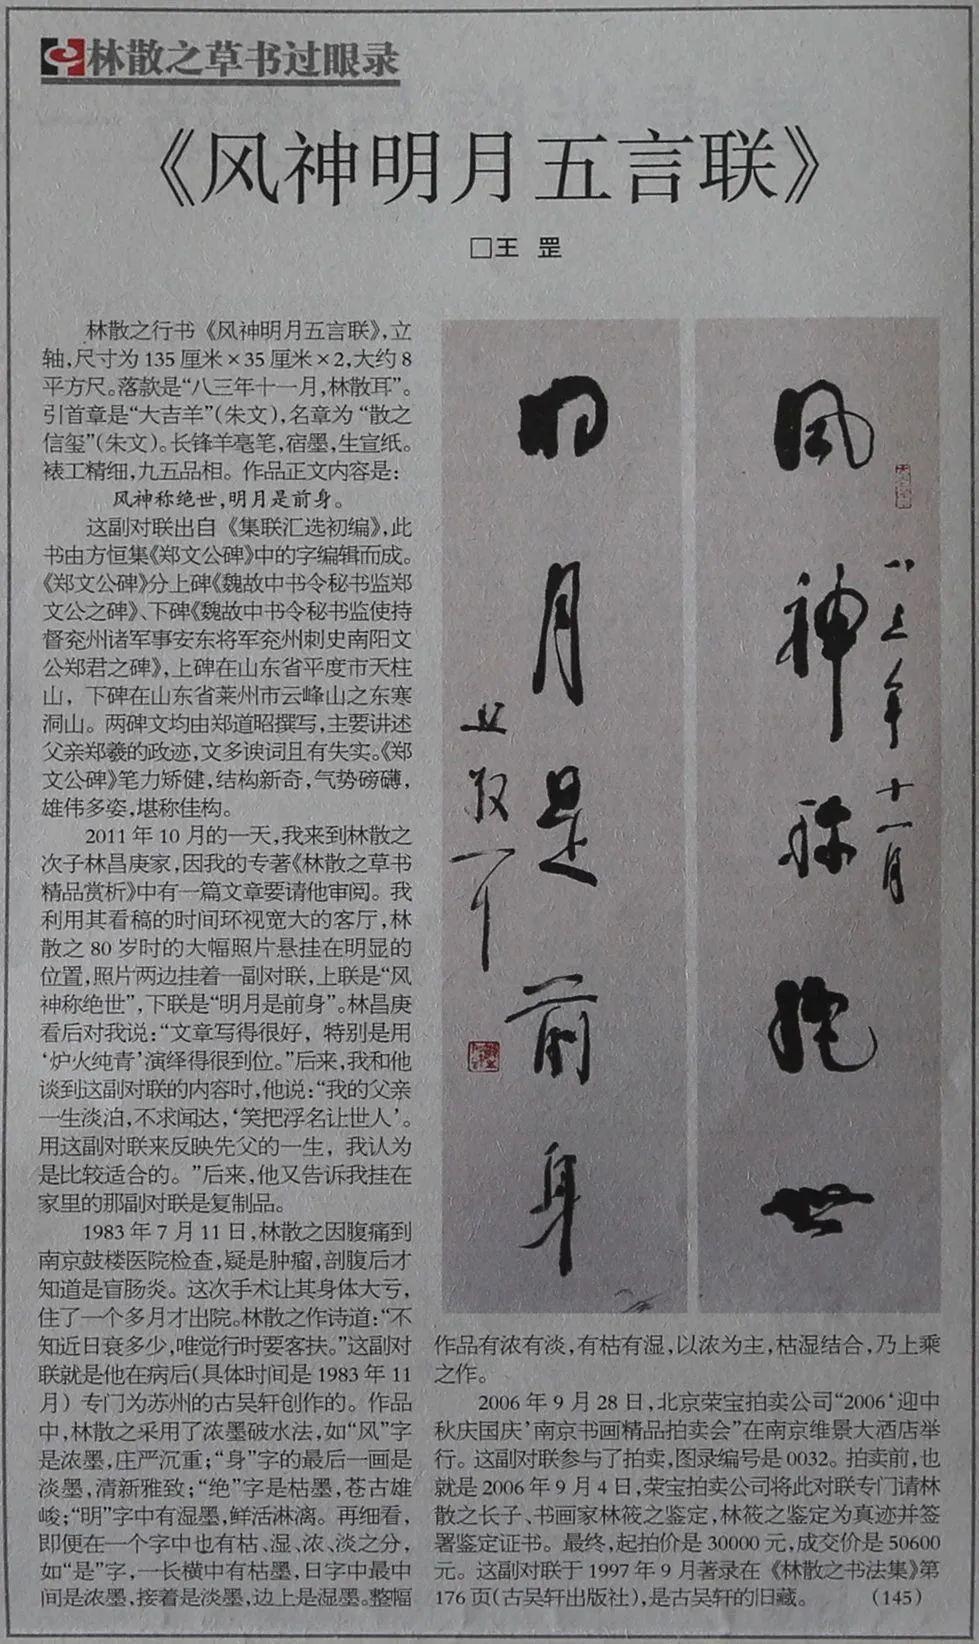 林散之草书过眼录
《风神明月五言联》
□王 罡
林散之行书《风神明月五言联》，立
轴，尺寸为135厘米×35厘米×2，大约8
平方尺。落款是“八三年十一月，林散耳”。
引首章是“大吉羊”（朱文），名章为“散之
信玺”（朱文）。长锋羊毫笔，宿墨，生宣纸。
裱工精细，九五品相。作品正文内容是：
风神称绝世，明月是前身。
这副对联出自《集联汇选初编》，此
书由方恒集《郑文公碑》中的字编辑而成。
《郑文公碑》分上碑《魏故中书令秘书监郑
文公之碑》、下碑《魏故中书令秘书监使持
督兖州诸军事安东将军兖州刺史南阳文
公郑君之碑》，上碑在山东省平度市天柱
山，下碑在山东省莱州市云峰山之东寒
洞山。两碑文均由郑道昭撰写，主要讲述
父亲郑羲的政迹，文多谀词且有失实。《郑
文公碑》笔力矫健，结构新奇，气势磅礴，
雄伟多姿，堪称佳构。
2011年10月的一天，我来到林散之
次子林昌庚家，因我的专著《林散之草书
精品赏析》中有一篇文章要请他审阅。我
利用其看稿的时间环视宽大的客厅，林
散之80岁时的大幅照片悬挂在明显的
位置，照片两边挂着一副对联，上联是“风
神称绝世”，下联是“明月是前身”。林昌庚
看后对我说：“文章写得很好，特别是用
‘炉火纯青’演绎得很到位。”后来，我和他
谈到这副对联的内容时，他说：“我的父亲
一生淡泊，不求闻达，‘笑把浮名让世人’。
用这副对联来反映先父的一生，我认为
是比较适合的。”后来，他又告诉我挂在
家里的那副对联是复制品。
1983年7月11日，林散之因腹痛到
南京鼓楼医院检查，疑是肿瘤，剖腹后才
知道是盲肠炎。这次手术让其身体大亏，
住了一个多月才出院。林散之作诗道：“不
知近日衰多少，唯觉行时要客扶。”这副对
联就是他在病后（具体时间是1983年11
月）专门为苏州的古吴轩创作的。作品
中，林散之采用了浓墨破水法，如“风”字
是浓墨，庄严沉重；“身”字的最后一画是
淡墨，清新雅致；“绝”字是枯墨，苍古雄
峻；“明”字中有湿墨，鲜活淋漓。再细看，
即便在一个字中也有枯、湿、浓、淡之分，
如“是”字，一长横中有枯墨，日字中最中
间是浓墨，接着是淡墨，边上是湿墨。整幅
风神称绝世
八三年十一月
明月是前身
林散耳
作品有浓有淡，有枯有湿，以浓为主，枯湿结合，乃上乘
之作。
2006年9月28日，北京荣宝拍卖公司“2006‘迎中
秋庆国庆’南京书画精品拍卖会”在南京维景大酒店举
行。这副对联参与了拍卖，图录编号是0032。拍卖前，也
就是2006年9月4日，荣宝拍卖公司将此对联专门请林
散之长子、书画家林筱之鉴定，林筱之鉴定为真迹并签
署鉴定证书。最终，起拍价是30000元，成交价是50600
元。这副对联于1997年9月著录在《林散之书法集》第
176页（古吴轩出版社），是古吴轩的旧藏。 （145）